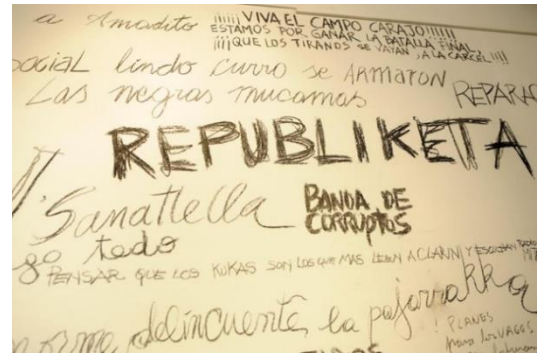 a Amadito
¡¡¡¡¡¡VIVA EL CAMPO CARAJO!!!!!!
ESTAMOS POR GANAR LA BATALLA FINAL
¡¡¡¡QUE LOS TIRANOS SE VAYAN ¡A LA CARCEL!!!!
OCIAL lindo curro se ARMARON
Las negras mucamas
REPARAC
REPUBLIKETA
Sanatella
BANDA DE
CORRUPTOS
go todo
PENSAR QUE LOS KUKAS SON LOS QUE MAS LEEN A CLARIN Y ESCUCHAN RADIO
delincuente, la pajarrakka
! PLANES
para los VAGOS